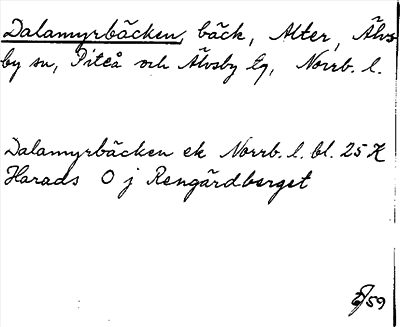 Dalamyrbäcken, bäck, Alter, Älvs
by sn, Piteå och Älvsby tg, Norrb. l.
Dalamyrbäcken ek Norrb. l. bl. 25 K
Harads O j Rengårdberget
/59